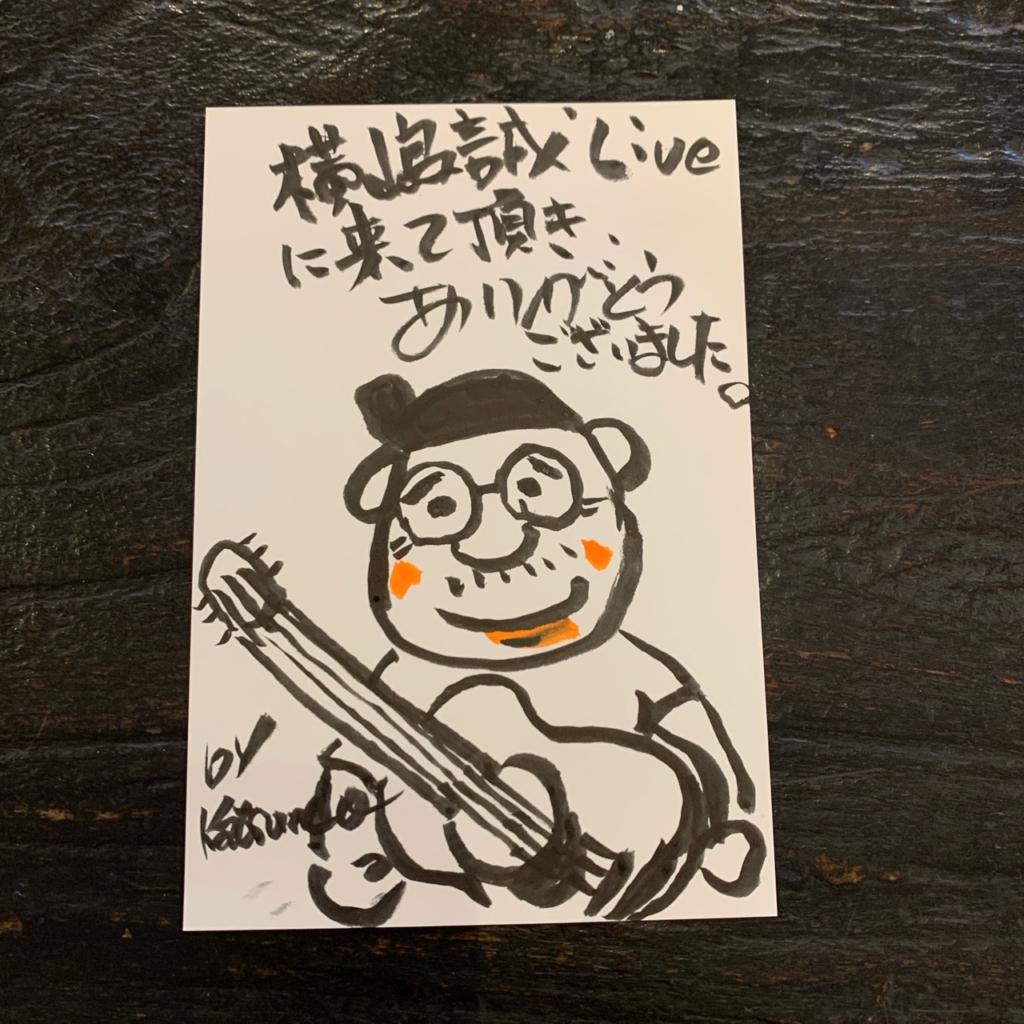 横嶋誠 Live
に来て頂き
ありがとう
ございました。
by
Katsundo